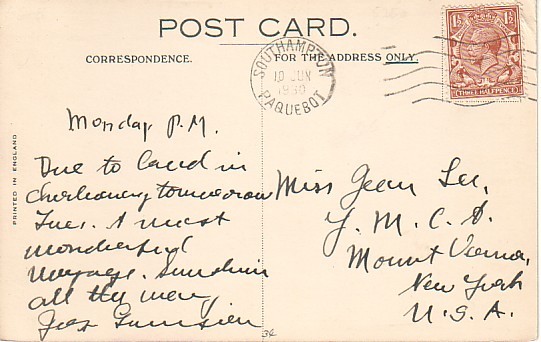 POST CARD.
CORRESPONDENCE.
FOR THE ADDRESS ONLY.
SOUTHAMPTON
10 JUN
1930
PAQUEBOT
1½ 1½
THREE HALFPENCE
PRINTED IN ENGLAND
Monday P.M.
Due to land in
tomorrow
Tues. A most
wonderful
voyage. Sunshine
all the way
Miss Jean Lee,
Y. M. C. A.
Mount Vernon,
New York
U. S. A.
34